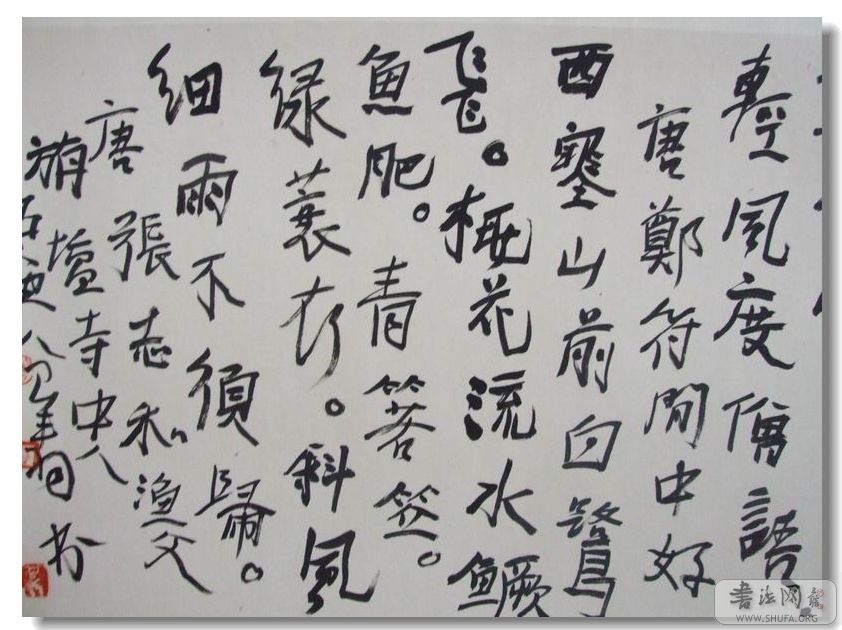 專風度僧語
唐鄭符閒中好
西塞山前白鷺
飛。桃花流水鱖
魚肥。青箬笠。
绿蓑衣。斜風
細雨不須歸。
唐張志和漁父
旃壇寺中人
八四年
书
书法网
WWW.SHUFA.ORG